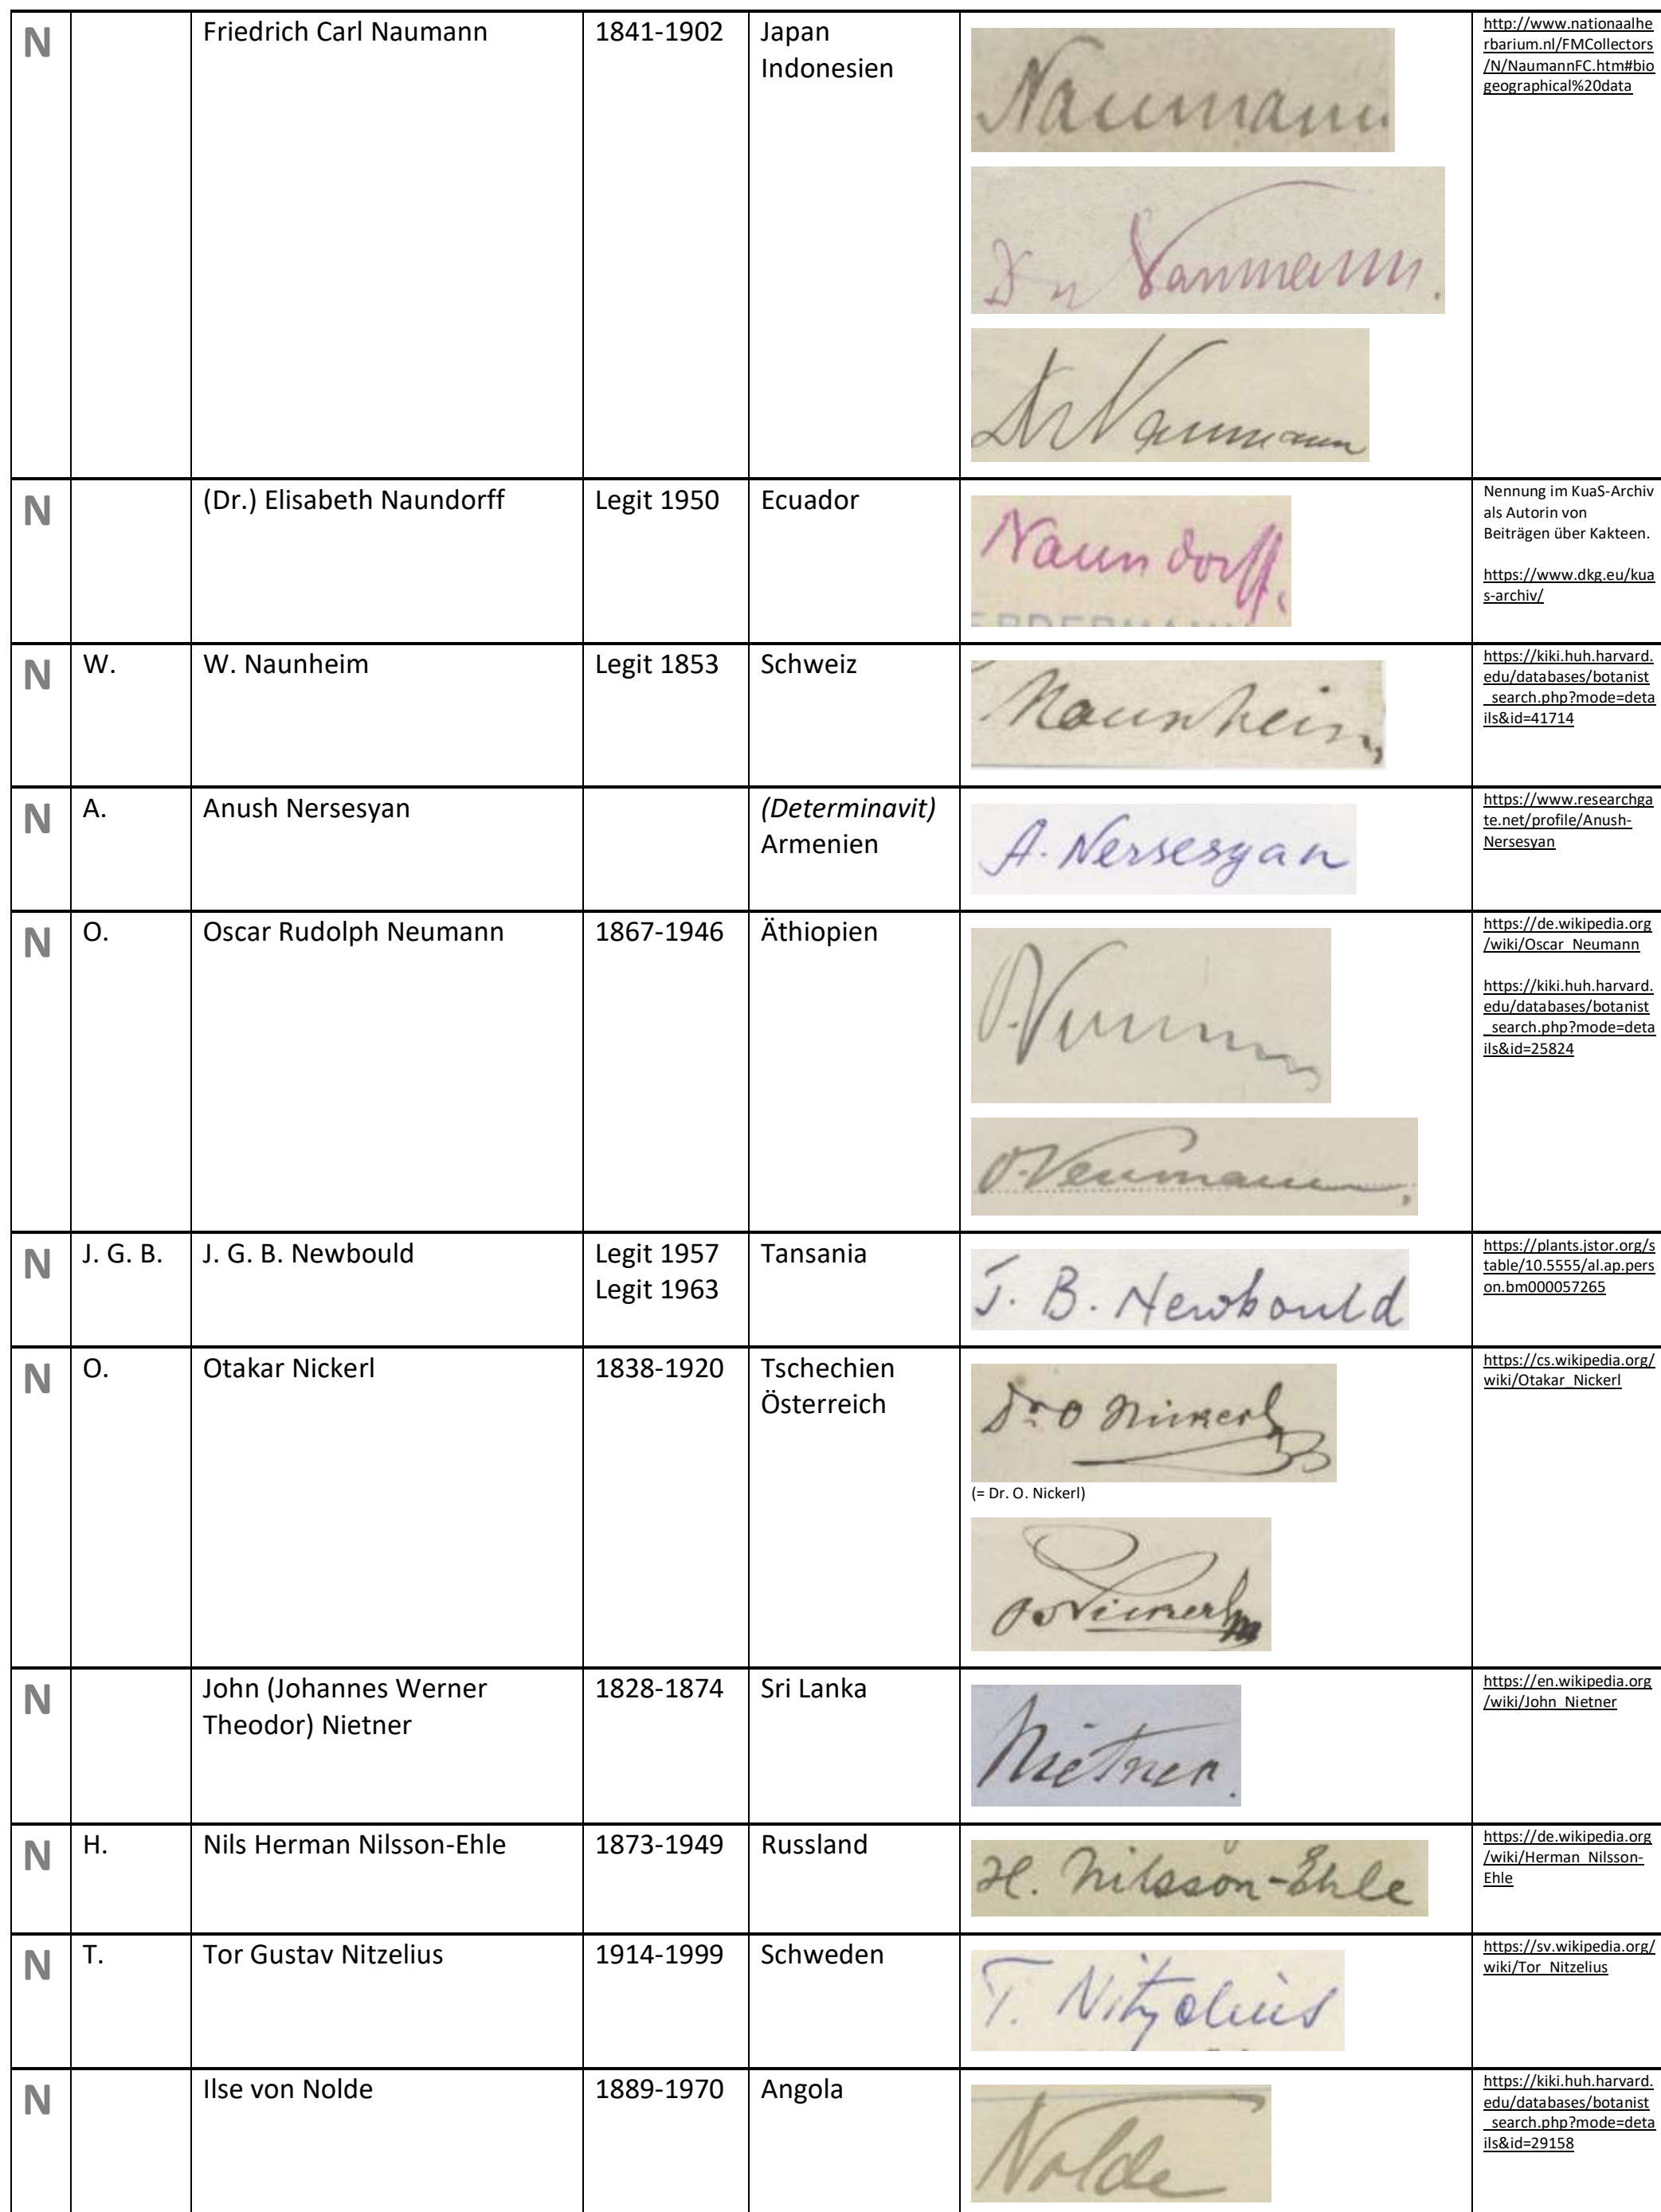 N Friedrich Carl Naumann 1841-1902 Japan
Indonesien
Naumann
Dr Naumann.
Dr Naumann
http://www.nationaalhe
rbarium.nl/FMCollectors
/N/NaumannFC.htm#bio
geographical%20data
N (Dr.) Elisabeth Naundorff Legit 1950 Ecuador
Naundorff.
Nennung im KuaS-Archiv
als Autorin von
Beiträgen über Kakteen.
https://www.dkg.eu/kua
s-archiv/
N W. W. Naunheim Legit 1853 Schweiz
Naunheim
https://kiki.huh.harvard.
edu/databases/botanist
_search.php?mode=deta
ils&id=41714
N A. Anush Nersesyan (Determinavit)
Armenien
A. Nersesyan
https://www.researchga
te.net/profile/Anush-
Nersesyan
N O. Oscar Rudolph Neumann 1867-1946 Äthiopien
O. Neumann.
https://de.wikipedia.org
/wiki/Oscar_Neumann
https://kiki.huh.harvard.
edu/databases/botanist
_search.php?mode=deta
ils&id=25824
N J. G. B. J. G. B. Newbould Legit 1957
Legit 1963
Tansania
J. B. Newbould
https://plants.jstor.org/s
table/10.5555/al.ap.pers
on.bm000057265
N O. Otakar Nickerl 1838-1920 Tschechien
Österreich
Dr. O Nickerl
(= Dr. O. Nickerl)
O Nickerl
https://cs.wikipedia.org/
wiki/Otakar_Nickerl
N John (Johannes Werner
Theodor) Nietner
1828-1874 Sri Lanka
Nietner.
https://en.wikipedia.org
/wiki/John_Nietner
N H. Nils Herman Nilsson-Ehle 1873-1949 Russland
H. Nilsson-Ehle
https://de.wikipedia.org
/wiki/Herman_Nilsson-
Ehle
N T. Tor Gustav Nitzelius 1914-1999 Schweden
T. Nitzelius
https://sv.wikipedia.org/
wiki/Tor_Nitzelius
N Ilse von Nolde 1889-1970 Angola
Nolde
https://kiki.huh.harvard.
edu/databases/botanist
_search.php?mode=deta
ils&id=29158